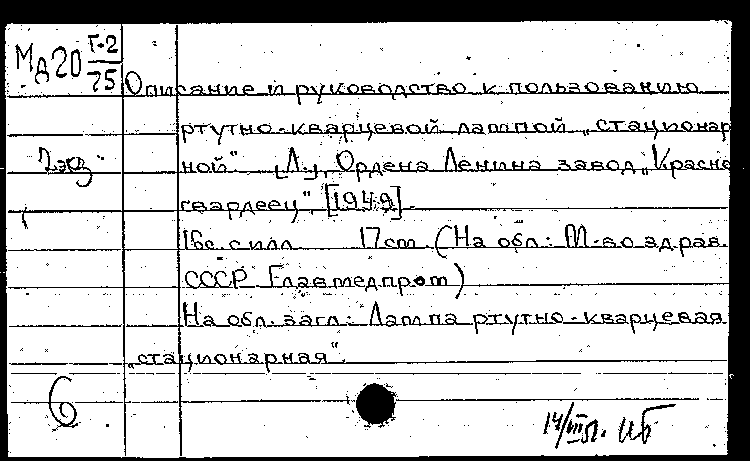 Мд20 Г-2
75
Описание и руководство к пользованию
ртутно-кварцевой лампой „стационар
2 экз
ной". [Л.], Ордена Ленина завод „Красно
гвардеец", [1949].
16с. с илл. 17cm. (На обл.: М-во здрав.
СССР Главмедпром)
На обл. загл.: Лампа ртутно-кварцевая
„стационарная".
6
14/III 51. ИБ